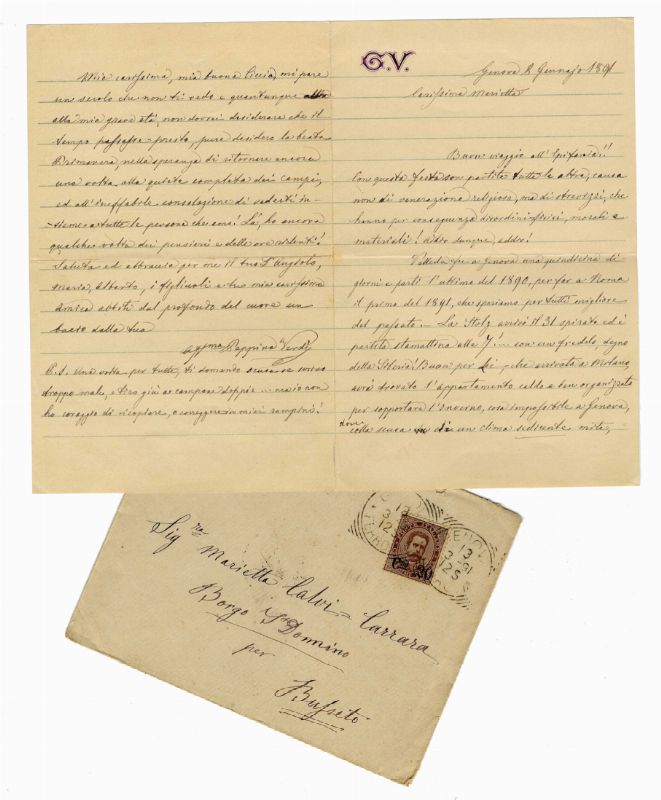 G.V.
Genova 8 Gennajo 1891
Carissima Marietta
Buon viaggio all'Epifania!!
Con questa festa son partite tutte le altre, causa
non di venerazione religiosa, ma di stravizzi, che
hanno per conseguenza disordini fisici, morali e
materiali! Addio dunque, addio!
fu a Genova una quindicina di
giorni e partì l'ultimo del 1890, per far a Roma
il primo del 1891, che speriamo per tutti migliore
del passato. — La Stolz arrivò il 31 spirato ed è
partita stamattina alle 7!... con un freddo, degno
della Siberia! Buon per lei, che arrivata a Milano,
avrà trovato l'appartamento caldo e ben organizzato
per sopportare l'Inverno, cosa impossibile a Genova,
dove
colla scusa di un clima sedicente mite,
Mia carissima, mia buona Ciccia, mi pare
un secolo che non ti vedo e quantunque
alla mia grave età, non dovrei desiderare che il
tempo passasse presto, pure desidero la beata
Primavera, nella speranza di ritornare ancora
una volta, alla quiete completa dei campi,
ed all'ineffabile consolazione di vederti in-
sieme a tutte le persone che ami! Là, ho ancora
qualche volta dei pensieri e delle ore ridenti!
Saluta ed abbraccia per me il tuo Angiolo,
Maria, Alberto, i figliuoli e tu mia carissima
amica abbiti dal profondo del cuore un
bacio dalla tua
affma Peppina Verdi
P.S. Una volta per tutte, ti domando scusa se scrivo
troppo male, e tiro giù a campane doppie... ma io non
ho coraggio di ricopiare, o correggere i miei rampini!
Sig.ra Marietta Calvi-Carrara
Borgo S. Donnino
per
Busseto
Cmi 20